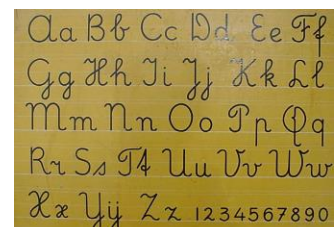 Aa Bb Cc Dd Ee Ff
Gg Hh Ii Jj Kk Ll
Mm Nn Oo Pp Qq
Rr Ss Tt Uu Vv Ww
Xx Yy Zz 1234567890